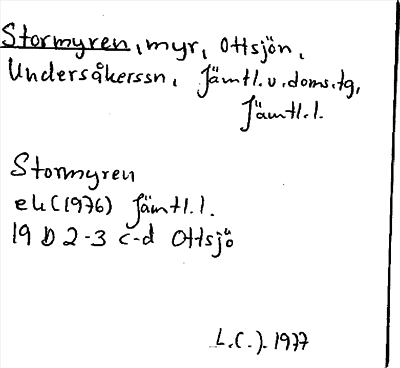 Stormyren, myr, Ottsjön,
Undersåkerssn, Jämtl.v.doms.tg,
Jämtl.l.
Stormyren
ek (1976) Jämtl.l.
19 D 2-3 c-d Ottsjö
L.C.J. 1977